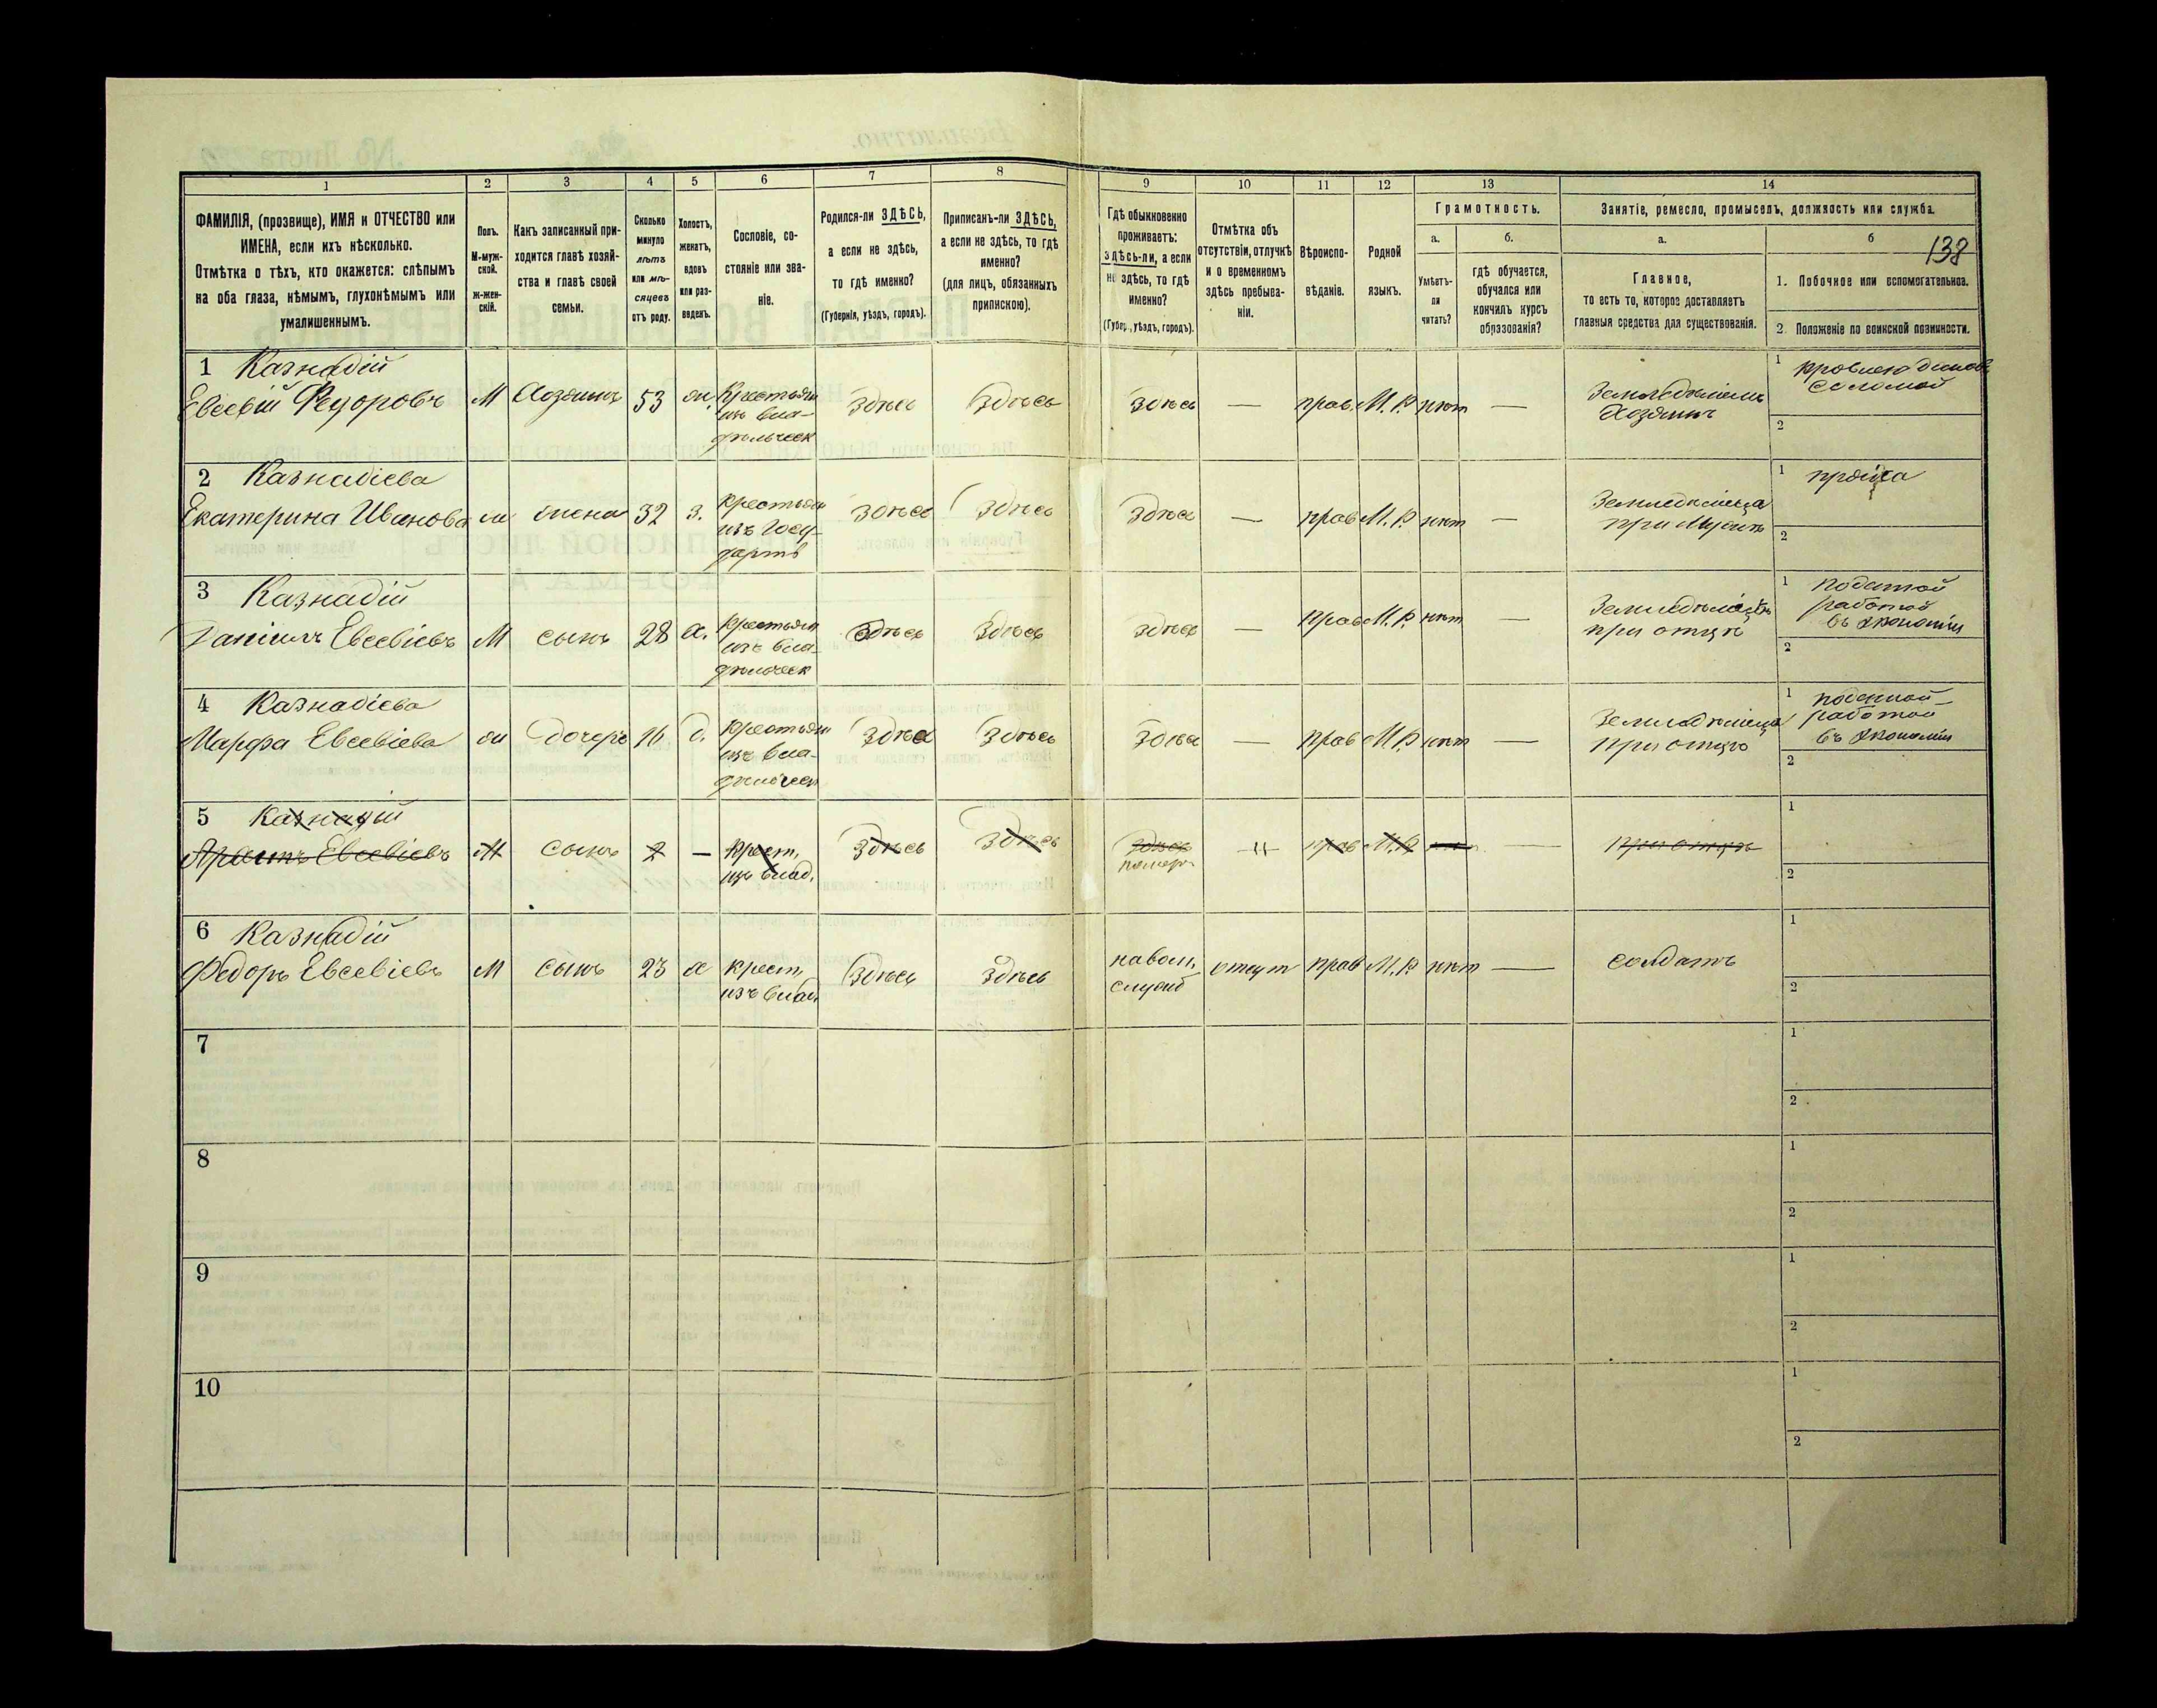 138
1
2
3
4
5
6
7
8
9
10
11
12
13
14
ФАМИЛІЯ, (прозвище), ИМЯ и ОТЧЕСТВО или
ИМЕНА, если ихъ нѣсколько.
Отмѣтка о тѣхъ, кто окажется: слѣпымъ
на оба глаза, нѣмымъ, глухонѣмымъ или
умалишеннымъ.
Полъ.
М-муж-
ской.
ж-жен-
скій.
Какъ записанный при-
ходится главѣ хозяй-
ства и главѣ своей
семьи.
Сколько
минуло
лѣтъ
или мѣ-
сяцевъ
отъ роду.
Холостъ,
женатъ,
вдовъ
или раз-
веденъ.
Сословіе, со-
стояніе или зва-
ніе.
Родился-ли ЗДѢСЬ,
а если не здѣсь,
то гдѣ именно?
(Губернія, уѣздъ, городъ).
Приписанъ-ли ЗДѢСЬ,
а если не здѣсь, то гдѣ
именно?
(для лицъ, обязанныхъ
припискою).
Гдѣ обыкновенно
проживаетъ:
здѣсь-ли, а если
не здѣсь, то гдѣ
именно?
(Губер., уѣздъ, городъ).
Отмѣтка объ
отсутствіи, отлучкѣ
и о временномъ
здѣсь пребыва-
ніи.
Вѣроиспо-
вѣданіе.
Родной
языкъ.
Грамотность.
а.
Умѣетъ-
ли
читать?
б.
гдѣ обучается,
обучался или
кончилъ курсъ
образованія?
Занятіе, ремесло, промыселъ, должность или служба.
а.
Главное,
то есть то, которое доставляетъ
главныя средства для существованія.
б
1. Побочное или вспомогательное.
2. Положеніе по воинской повинности.
1 Казнадій
Евсевій Федоровъ
М
Хозяинъ
53
ж.
Крестьян
изъ вла-
дѣльческ
Здѣсь
Здѣсь
здѣсь
—
прав.
М.Р.
нѣт
—
Земледѣлецъ
Хозяинъ
1
соломой
2
2 Казнадіева
Екатерина Иванова
ж
жена
32
з.
крестьян
изъ Госу-
дарств
Здѣсь
Здѣсь
Здѣсь
—
прав
М.Р.
нѣт
—
Земледѣлица
при мужѣ
1 пряжа
2
3 Казнадій
Даніилъ Евсевіевъ
М
сынъ
28
х.
Крестьян
изъ вла-
дѣльческ
Здѣсь
Здѣсь
здѣсь
—
прав
М.Р.
нѣт
—
Земледѣлецъ
при отцѣ
1 поденной
работой
въ экономіи
2
4 Казнадіева
Марфа Евсевіева
ж
дочерь
16
д.
Крестьян
изъ вла-
дѣльческ
Здѣсь
Здѣсь
Здѣсь
—
прав
М.Р
нѣт
—
Земледѣлица
при отцѣ
1 поденной
работой
въ экономіи
2
5 Казнадій
Евсевіевъ
М
сынъ
2
—
Крест.
изъ влад.
Здѣсь
Здѣсь
Здѣсь
померъ
прав
М.Р
—
при отцѣ
1
2
6 Казнадій
Федоръ Евсевіевъ
М
сынъ
23
х
крест.
изъ влад.
Здѣсь
Здѣсь
на воен.
служб
отсут
прав
М.Р
нѣт
—
солдатъ
1
2
7
1
2
8
1
2
9
1
2
10
1
2